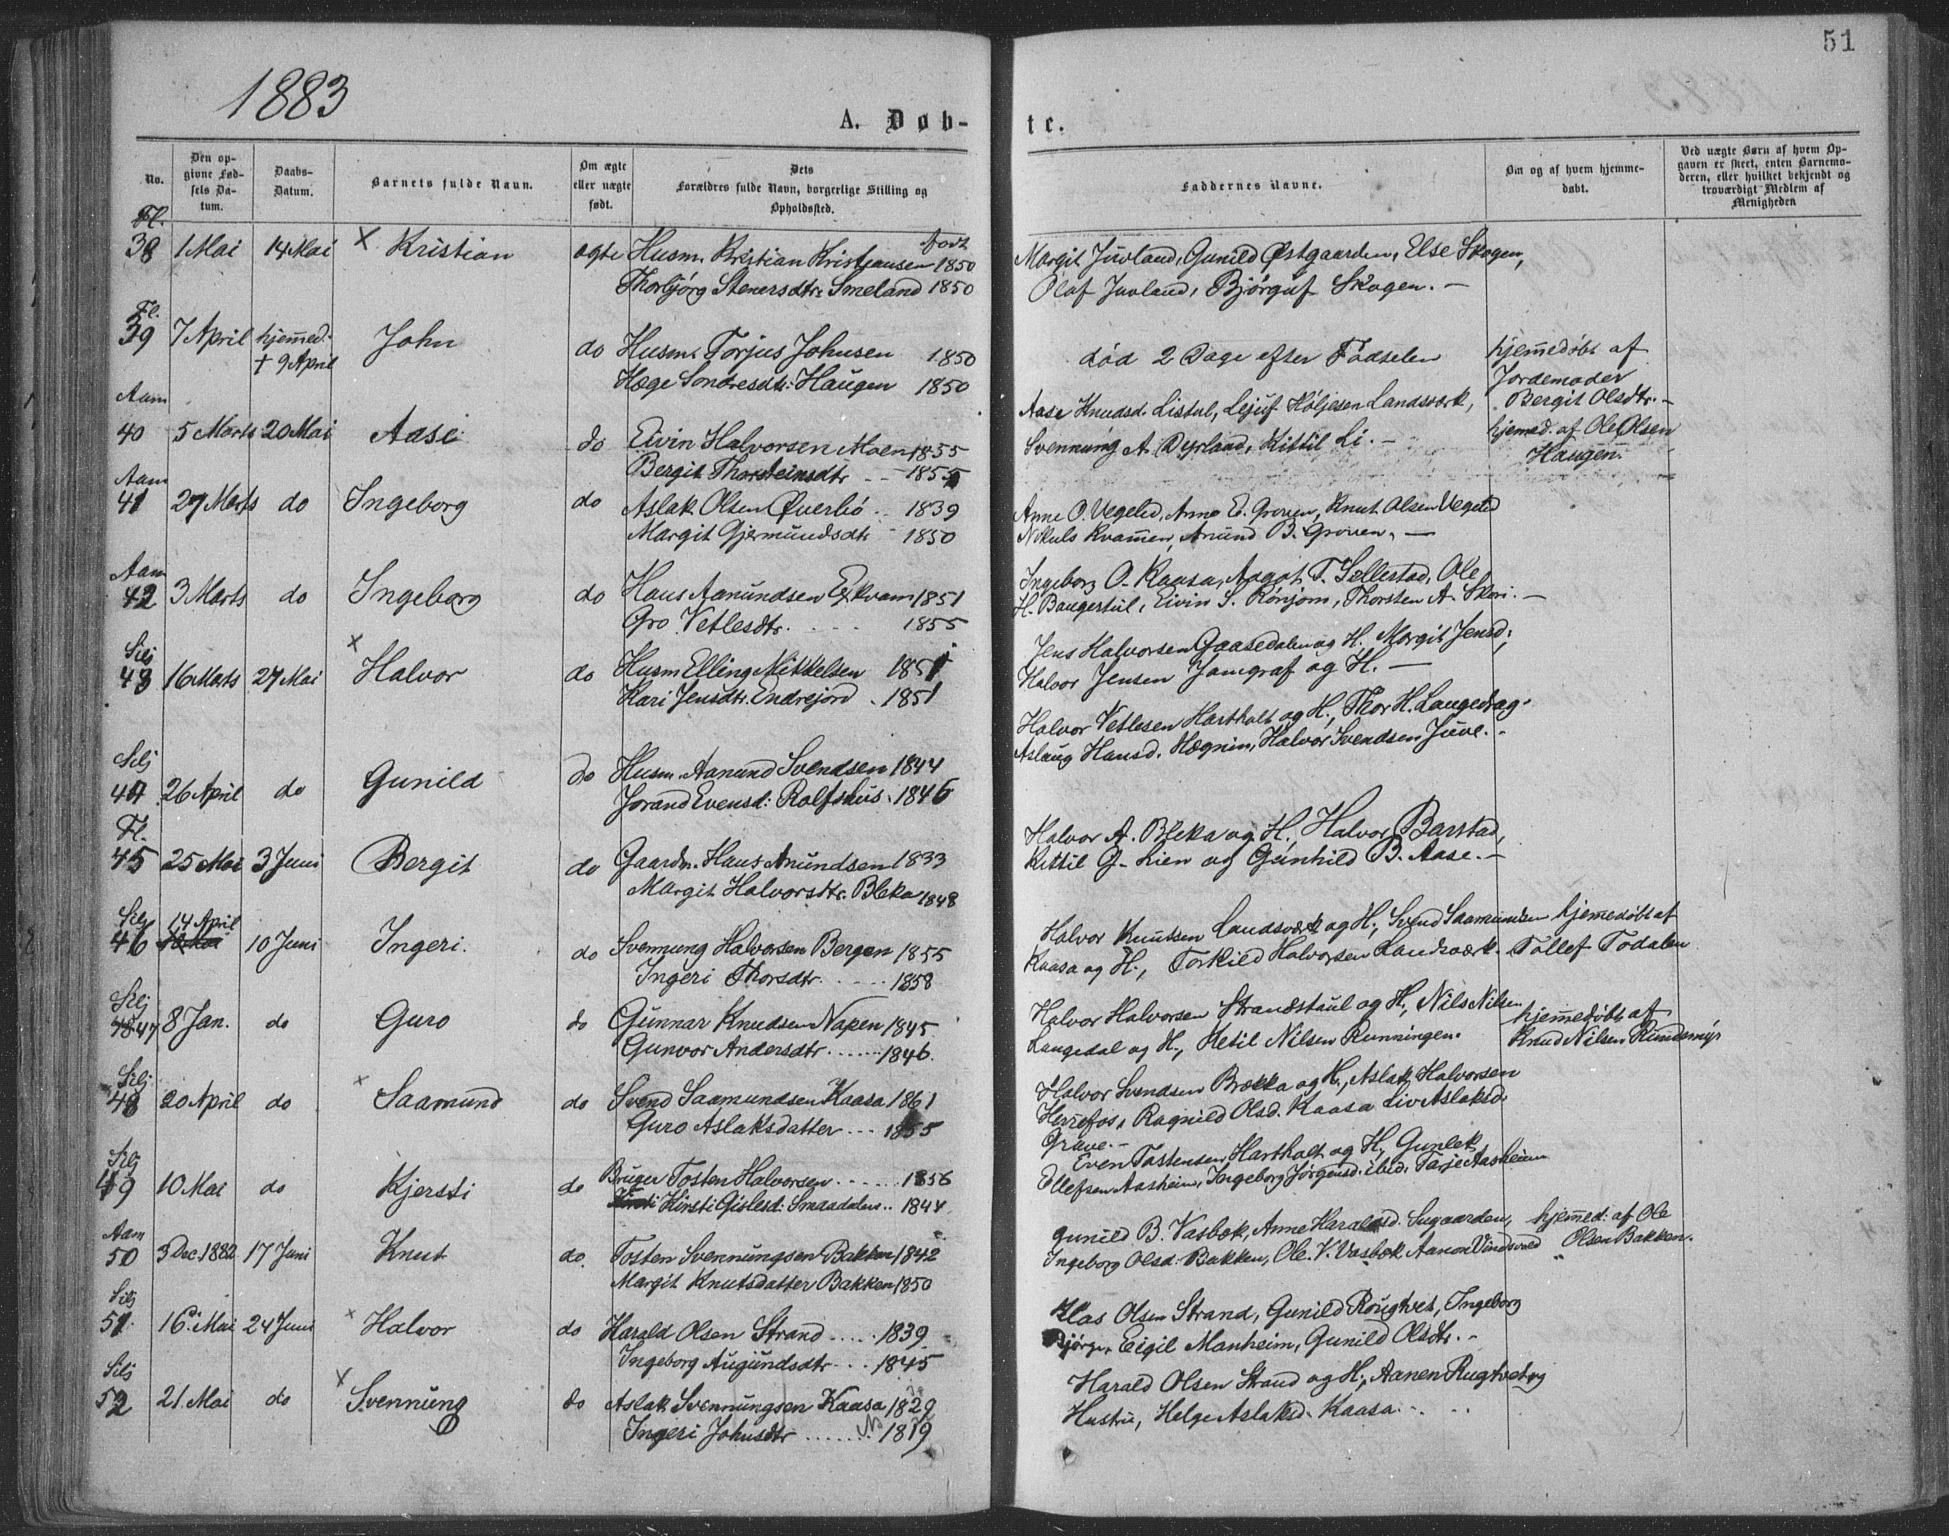 51
1883
A. Døb-
te.
No.
Den op-
givne Fød-
sels Da-
tum.
Daabs-
Datum.
Barnets fulde Navn.
Om ægte
eller uægte
født.
Dets
Forældres fulde Navn, borgerlige Stilling og
Opholdssted.
Faddernes Navne.
Om og af hvem hjemme-
døbt.
Ved uægte Børn af hvem Op-
gaven er skeet, enten Barnemo-
deren, eller hvilket bekjendt og
troværdigt Medlem af
Menigheden
Fl.
38 1 Mai 14 Mai × Kristian ægte Husm. Kristian Kristiansen født 1850
Thorbjørg Stenersdtr. Smeland 1850
Margit Juvland, Gunild Østgaarden, Else Skogen,
Olaf Juvland, Bjørguf Skogen. —
Fl.
39 7 April hjemmed. John do Husm. Torjus Johnsen 1850
+ 9 April
Hæge Sondresdtr: Haugen 1850
død 2 Dage efter Fødselen
hjemmedøbt af
Jordemoder
Bergit Olsdtr. —
Aam
40 5 Marts 20 Mai Aase do Eivin Halvorsen Moen 1855
Bergit Thorsteinsdtr — 1855
Aase Knudsd. Listul, Lejuf Høljesen Landsverk,
Svennung A. Dyrland, Kittil Li. —
hjemed. af Ole Olsen
Haugen.
Aam
41 27 Marts do Ingeborg do Aslak Olsen Øverbø .. 1839
Margit Gjermundsdtr 1850
Anne O. Vegelid, Anne E. Groven, Knut Olsen Vegelid
Nikuls Kvammen, Anund B. Groven. —
Aam
42 3 Marts do Ingeborg do Hans Aanundsen Ekvam 1851
Gro Vetlesdtr. . . . . 1855
Ingeborg O. Kaasa, Aagot T. Sellestad, Ole
H. Baugerstul, Eivin S. Rønjom, Thorsten A. Skori. —
Selj
43 16 Marts 27 Mai × Halvor do Husm Elling Mikkelsen 1851
Kari Jensdtr. Endrejord . 1851
Jens Halvorsen Gaasedalen og H. Margit Jensd,
Halvor Jensen Jamgraf og H. —
Selj
44 26 April do Gunild do Husm. Aanund Svendsen 1844
Jorand Evensd: Rolfshus . 1846
Halvor Vetlesen Hartholt og H., Thor H. Langedrag.
Aslaug Hansd. Hægnin, Halvor Svendsen Juve. -
Fl.
45 25 Mai 3 Juni Bergit do Gaardm. Hans Anundsen 1833
Margit Halvorsdtr. Bleka 1848
Halvor A. Bleka og H., Halvor Barstad,
Kittil G. Lien og Gunhild B. Aase. —
Selj
14 April
46 10 Juni Ingeri. do Svennung Halvorsen Bergen 1855
Ingeri Thorsdtr. . . . . . 1858
Halvor Knutsen Landsværk og H., Svend Saamundsen
Kaasa og H., Torkild Halvorsen Landsværk.
hjemedøbt af
Tollef Todalen
Selj
47 8 Jan. do Guro do Gunnar Knudsen Napen 1845
Gunvor Andersdtr. . . . . . 1846.
Halvor Halvorsen Strandstaul og H., Nils Nilsen
Langedal og H., Ketil Nilsen Runningen.
hjemedøbt af
Knud Nilsen
Selj
48 20 April do × Saamund do Svend Saamundsen Kaasa 1861
Guro Aslaksdatter . . . 1855
Halvor Svendsen Brækka og H., Aslak Halvorsen
Herrefos, Ragnild Olsd. Kaasa Liv Aslaksd.
Grave. —
Selj
49 10 Mai do Kjersti do Bruger Tosten Halvorsen . . . . . . 1856
Kirsti Gislesd: Smaadalen .. 1844
Even Tostensen Hartholt og H., Gunlek
Ellefsen Aasheim, Ingeborg Jørgensd. ibid. Tarje Aasheim
Aam
50 3 Dec. 1882 17 Juni Knut do. Tosten Svennungsen Bakken 1842
Margit Knutsdatter Bakken 1850
Gunild B. Vasbæk, Anne Haraldsd. Sugaarden,
Ingeborg Olsd. Bakken, Ole K. Vasbæk, Aanon Vindsvald
hjemed: af Ole
Olsen Bakken.
Selj
51. 16. Mai 24 Juni × Halvor do Harald Olsen Strand . . . . . 1839
Ingeborg Augundsdtr. . . 1845
Olsen Strand, Gunild Rougtvet, Ingeborg
Eigil Manheim, Gunild Olsdtr. -
Selj
52 21. Mai do × Svennung do Aslak Svennungsen Kaasa 1829
Ingeri Johnsdtr . . . . . . . 1819
Harald Olsen Strand og H., Aanen Rugtvet og
Hustru, Helge Aslaksd. Kaasa. . .